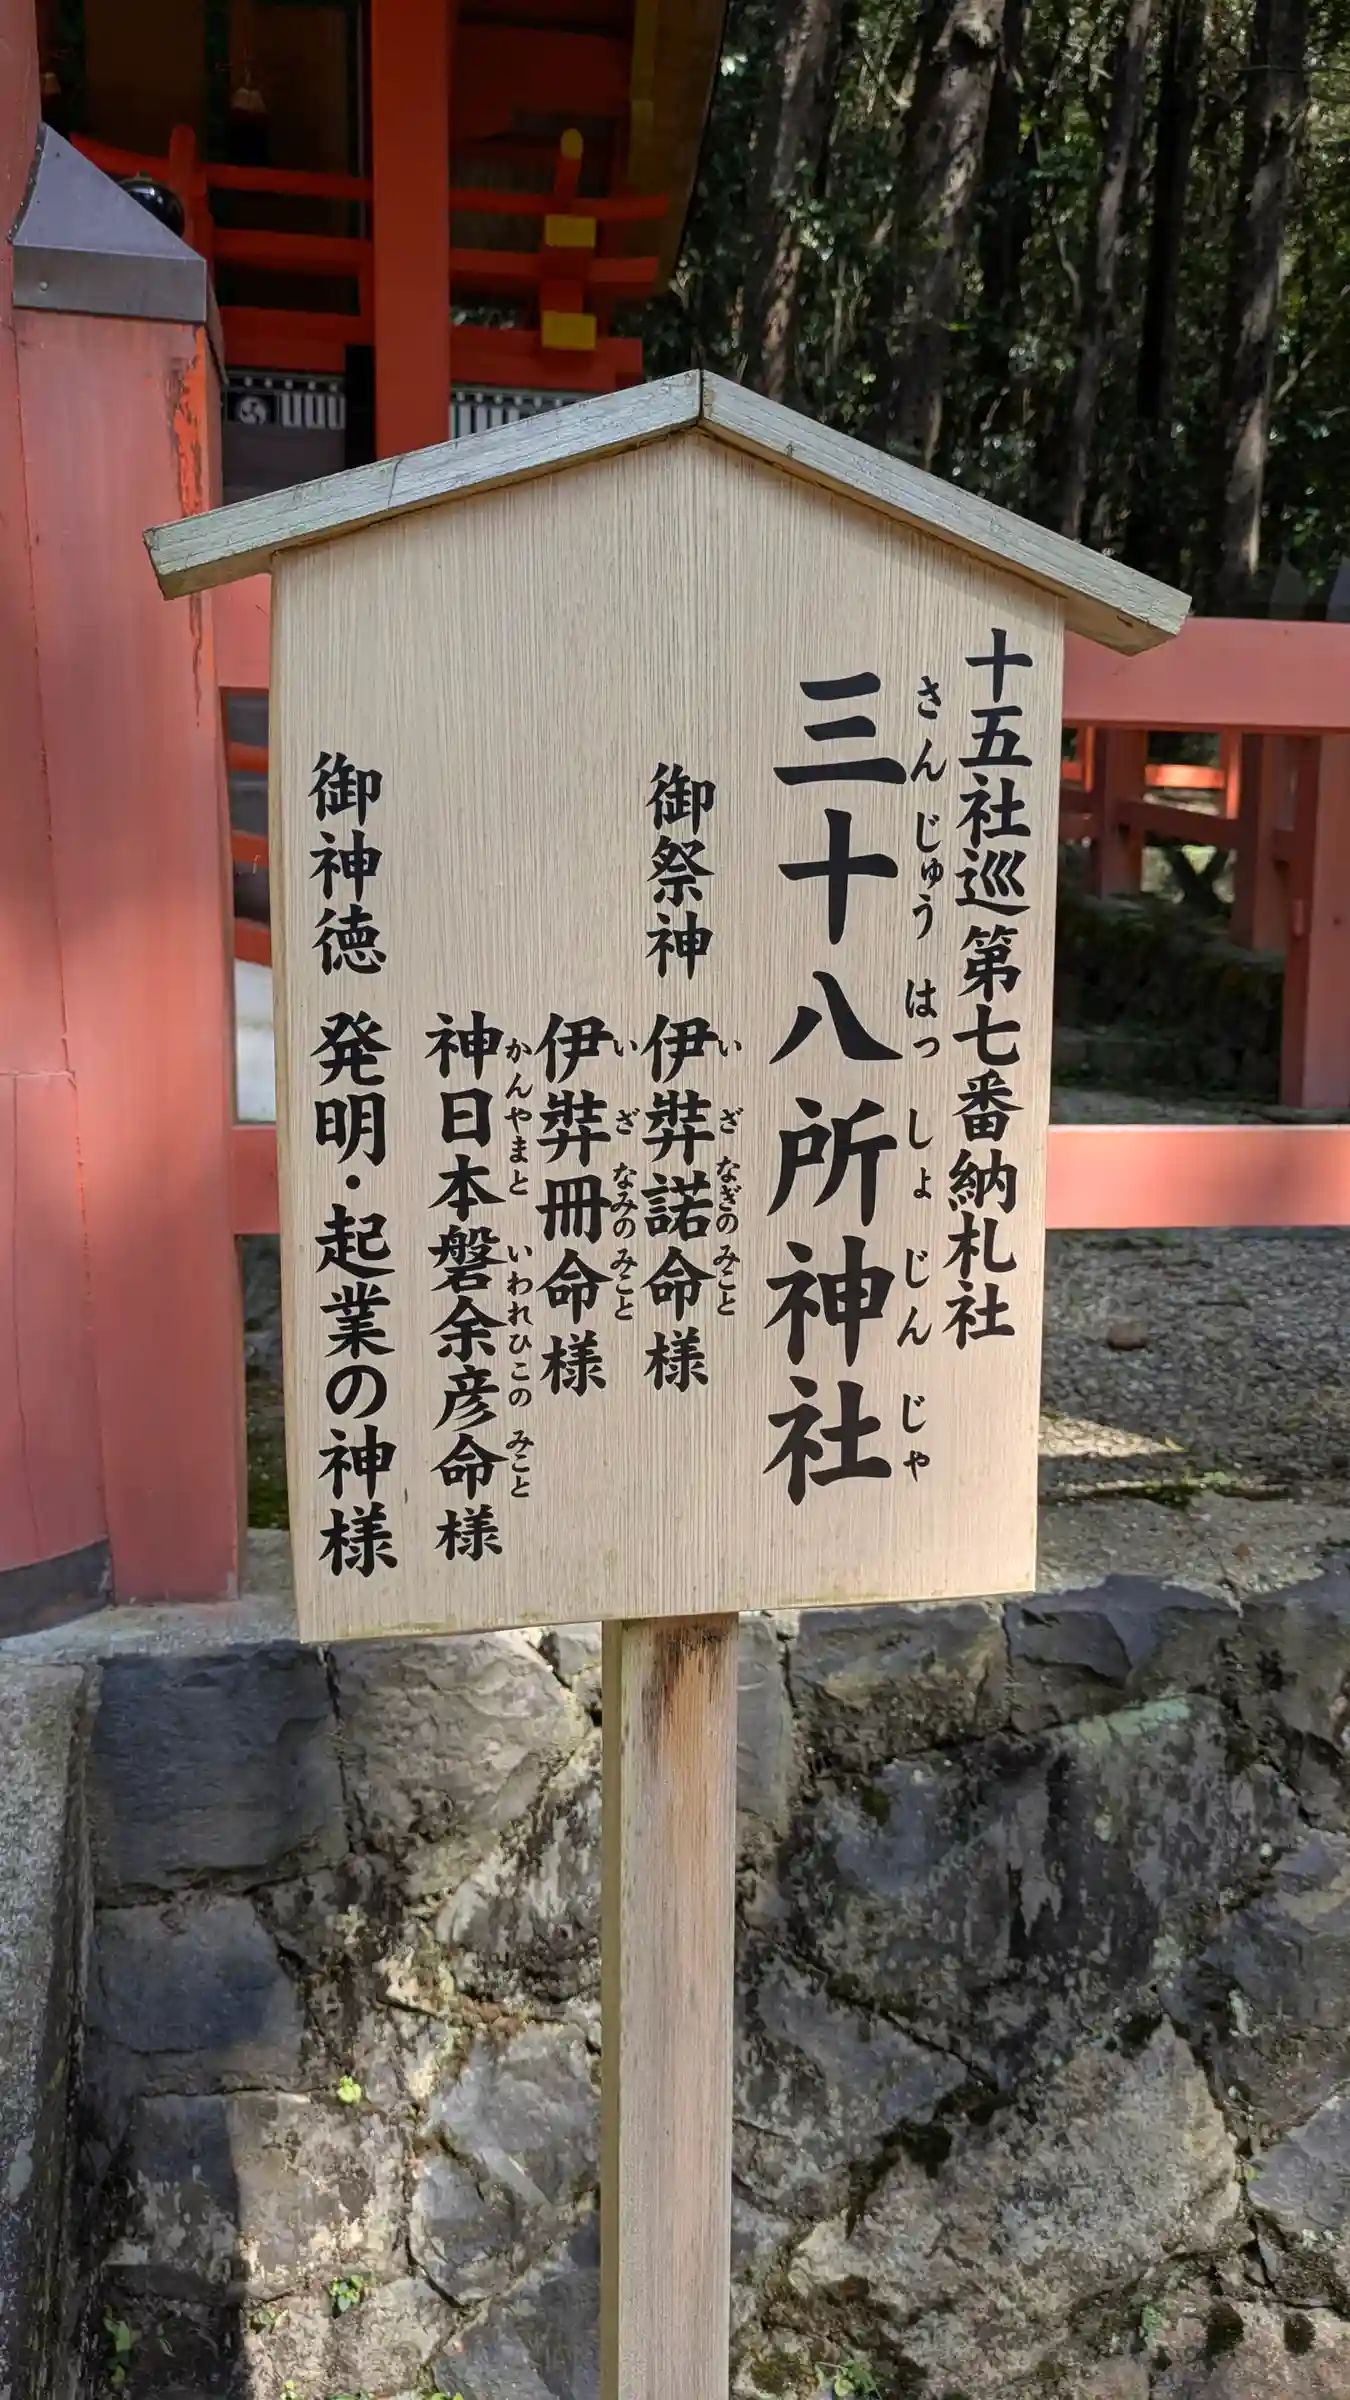 十五社巡第七番納札社
さんじゅうはっしょじんじゃ
三十八所神社
御祭神 伊弉諾命様
いざなぎのみこと
伊弉冊命様
いざなみのみこと
神日本磐余彦命様
かんやまといわれひこのみこと
御神徳 発明・起業の神様